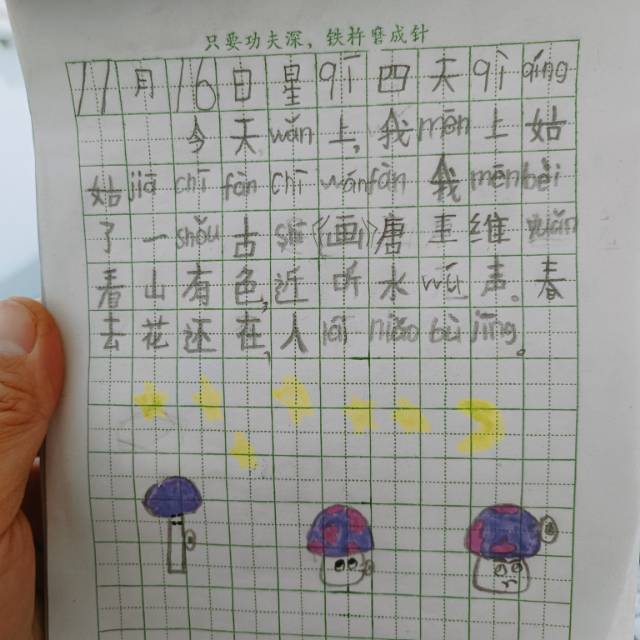 只要功夫深，铁杵磨成针
11月16日星qī四天qì qíng
今天wǎn上，我mēn上姑
姑jiā chī fàn chī wánfàn我mēnbèi
了一shǒu古shī《画》唐王维yuǎn
看山有色，近听水wú声。春
去花还在，人lái niǎo bù jīng。